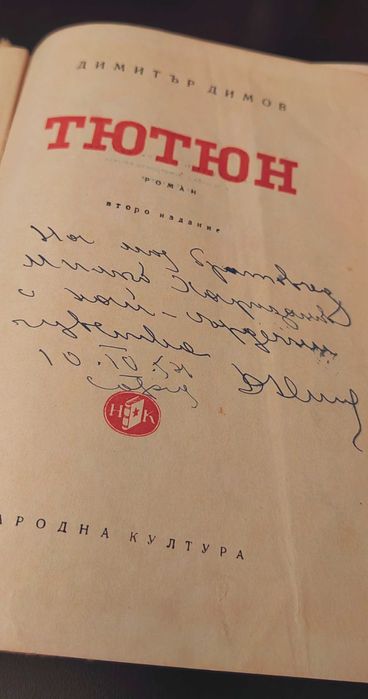 ДИМИТЪР ДИМОВ
ТЮТЮН
РОМАН
второ издание
На моя братовчед
Минчо
с най-сърдечни
чувства
10. IV. 54.
София
НК
АРОДНА КУЛТУРА